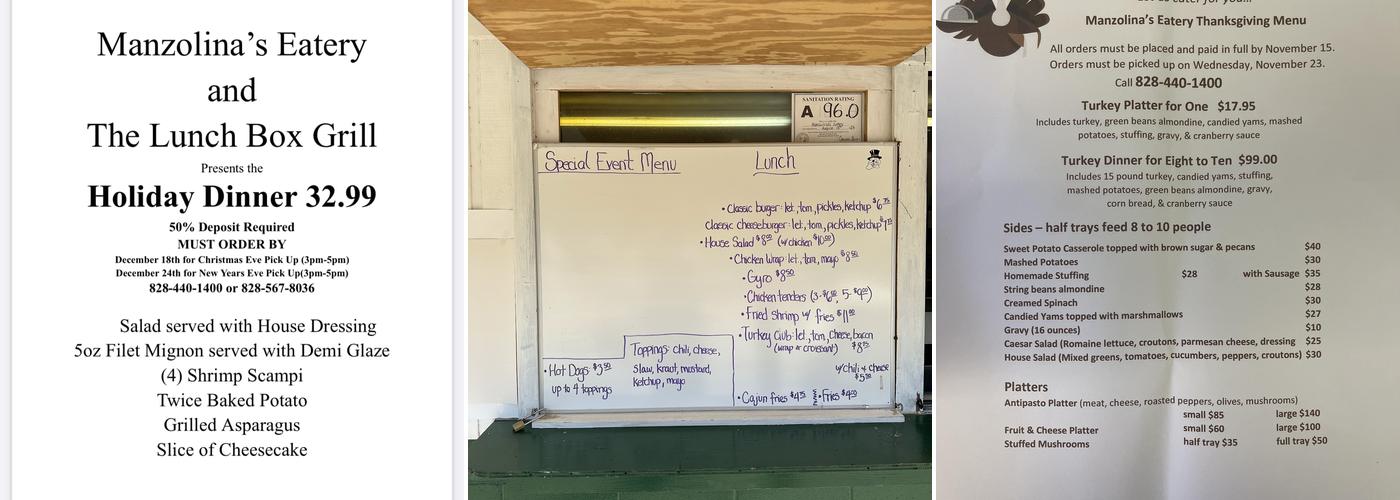 Manzolina's Eatery
and
The Lunch Box Grill
Presents the
Holiday Dinner 32.99
50% Deposit Required
MUST ORDER BY
December 18th for Christmas Eve Pick Up (3pm-5pm)
December 24th for New Years Eve Pick Up(3pm-5pm)
828-440-1400 or 828-567-8036
Salad served with House Dressing
5oz Filet Mignon served with Demi Glaze
(4) Shrimp Scampi
Twice Baked Potato
Grilled Asparagus
Slice of Cheesecake
SANITATION RATING
A 96.0
Special Event Menu
Lunch
• Classic burger: let., tom, pickles, ketchup
Classic cheeseburger: let., tom, pickles, ketchup
• House Salad $8.00 (w/chicken $10.00)
• Chicken Wrap: let., tom, mayo $8.50
• Gyro $8.50
• Chicken tenders
• Fried Shrimp w/ fries $11.00
• Turkey Club: let., tom, cheese, bacon
(wrap or croissant)
w/chili + cheese
• Cajun fries
• Fries
Toppings: chili, cheese,
slaw, kraut, mustard,
ketchup, mayo
• Hot Dogs: $3.50
up to 4 toppings
Manzolina's Eatery Thanksgiving Menu
All orders must be placed and paid in full by November 15.
Orders must be picked up on Wednesday, November 23.
Call 828-440-1400
Turkey Platter for One $17.95
Includes turkey, green beans almondine, candied yams, mashed
potatoes, stuffing, gravy, & cranberry sauce
Turkey Dinner for Eight to Ten $99.00
Includes 15 pound turkey, candied yams, stuffing,
mashed potatoes, green beans almondine, gravy,
corn bread, & cranberry sauce
Sides – half trays feed 8 to 10 people
Sweet Potato Casserole topped with brown sugar & pecans $40
Mashed Potatoes $30
Homemade Stuffing $28 with Sausage $35
String beans almondine $28
Creamed Spinach $30
Candied Yams topped with marshmallows $27
Gravy (16 ounces) $10
Caesar Salad (Romaine lettuce, croutons, parmesan cheese, dressing $25
House Salad (Mixed greens, tomatoes, cucumbers, peppers, croutons) $30
Platters
Antipasto Platter (meat, cheese, roasted peppers, olives, mushrooms)
small $85 large $140
Fruit & Cheese Platter small $60 large $100
Stuffed Mushrooms half tray $35 full tray $50